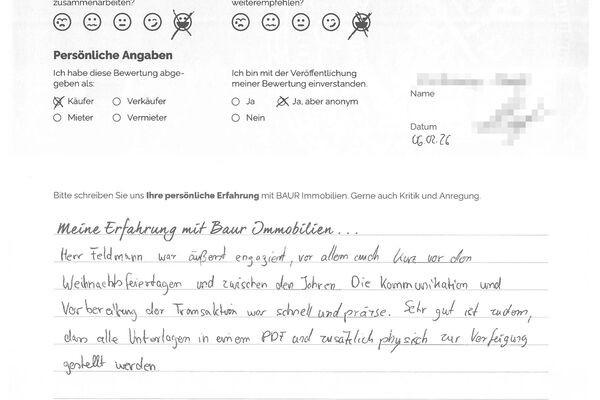 zusammenarbeiten?
weiterempfehlen?
Persönliche Angaben
Ich habe diese Bewertung abge-
geben als:
Käufer
Verkäufer
Mieter
Vermieter
Ich bin mit der Veröffentlichung
meiner Bewertung einverstanden.
Ja
Ja, aber anonym
Nein
Name
Datum
06.02.26
Bitte schreiben Sie uns Ihre persönliche Erfahrung mit BAUR Immobilien. Gerne auch Kritik und Anregung.
Meine Erfahrung mit Baur Immobilien...
Herr Feldmann war äußerst engagiert, vor allem auch kurz vor den
Weihnachtsfeiertagen und zwischen den Jahren. Die Kommunikation und
Vorbereitung der Transaktion war schnell und präzise. Sehr gut ist zudem,
dass alle Unterlagen in einem PDF und zusätzlich physisch zur Verfügung
gestellt werden